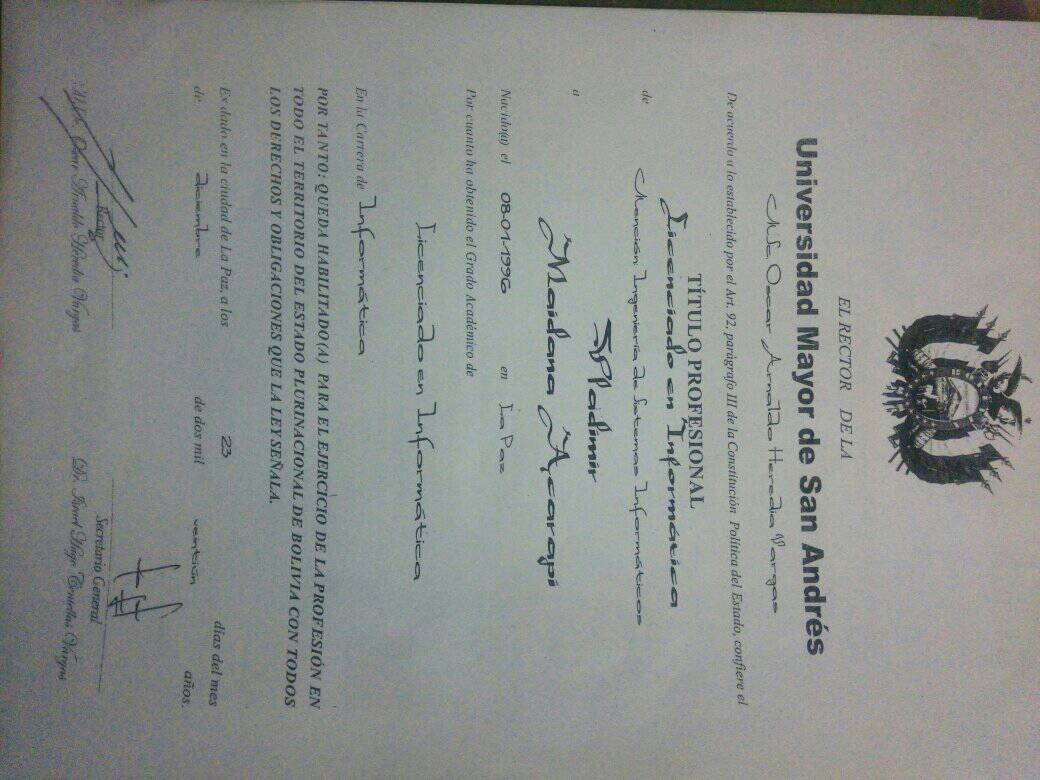 EL RECTOR DE LA
Universidad Mayor de San Andrés
MSc Oscar Arnaldo Heredia Vargas
De acuerdo a lo establecido por el Art. 92, parágrafo III de la Constitución Política del Estado, confiere el
TÍTULO PROFESIONAL
de Licenciado en Informática
Mención Ingeniería de Sistemas Informáticos
Wladimir
a Maidana Acarapi
Nacido(a) el 08-01-1996 en La Paz
Por cuanto ha obtenido el Grado Académico de
Licenciado en Informática
En la Carrera de Informática
POR TANTO: QUEDA HABILITADO(A) PARA EL EJERCICIO DE LA PROFESIÓN EN
TODO EL TERRITORIO DEL ESTADO PLURINACIONAL DE BOLIVIA CON TODOS
LOS DERECHOS Y OBLIGACIONES QUE LA LEY SEÑALA.
Es dado en la ciudad de La Paz, a los 23 días del mes
de diciembre de dos mil ventiún años.
Rector
Oscar Arnaldo Heredia Vargas
Secretario General
Vargas